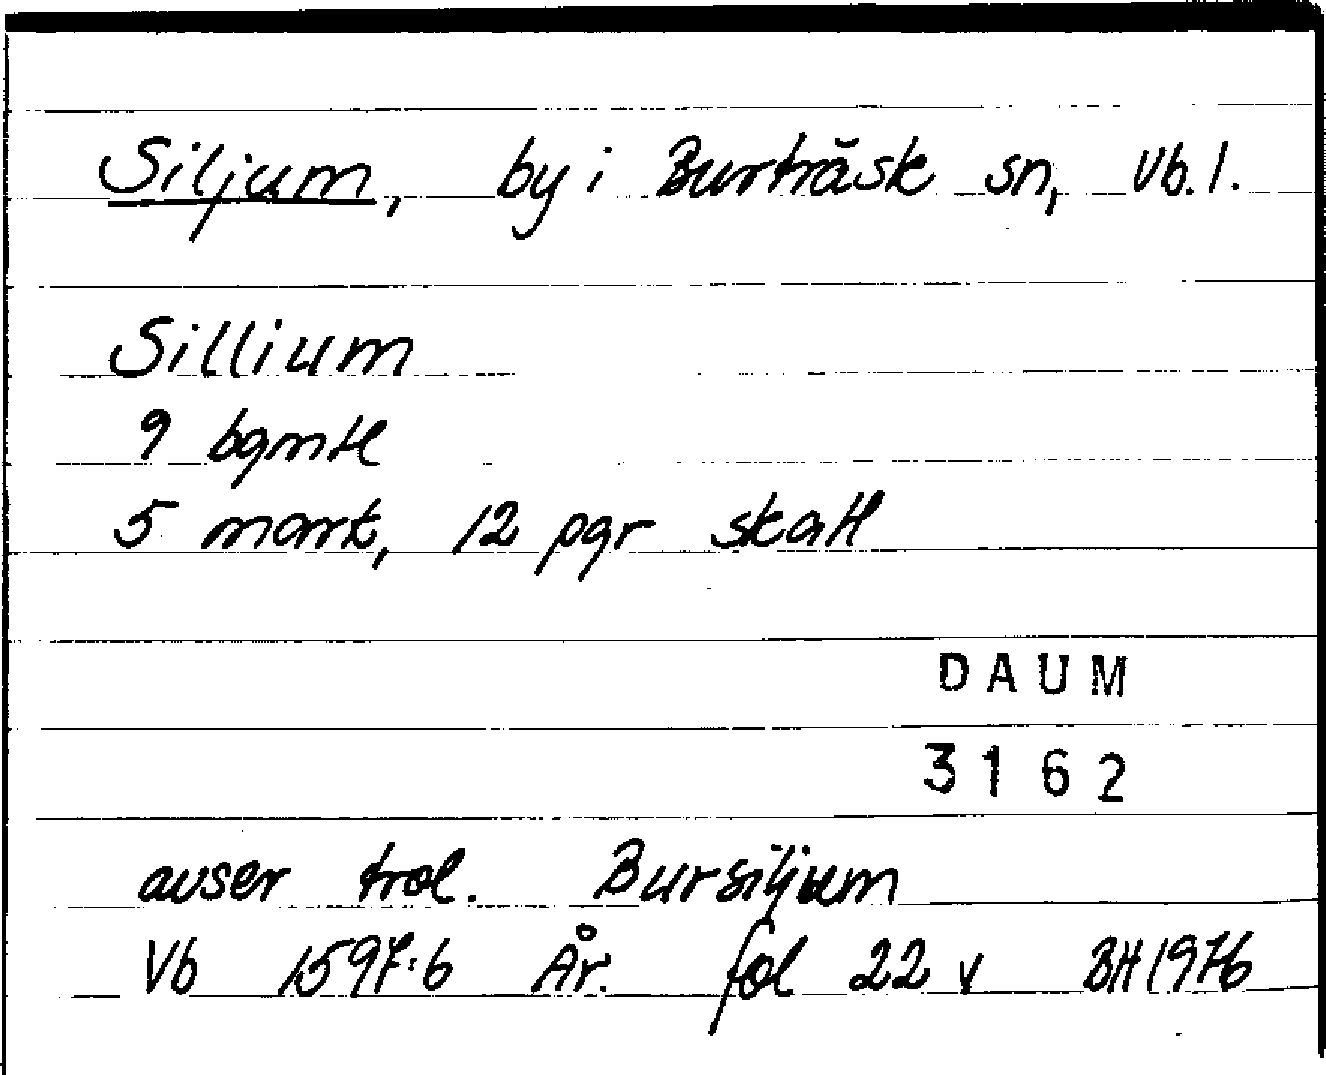 Siljum, by i Burträsk sn, Vb. l.
Sillium
9 bgmtl
5 mark, 12 pgr skatt
DAUM
3162
avser trol. Bursiljum
Vb 1597:6 År. fol 22 v BH 1976